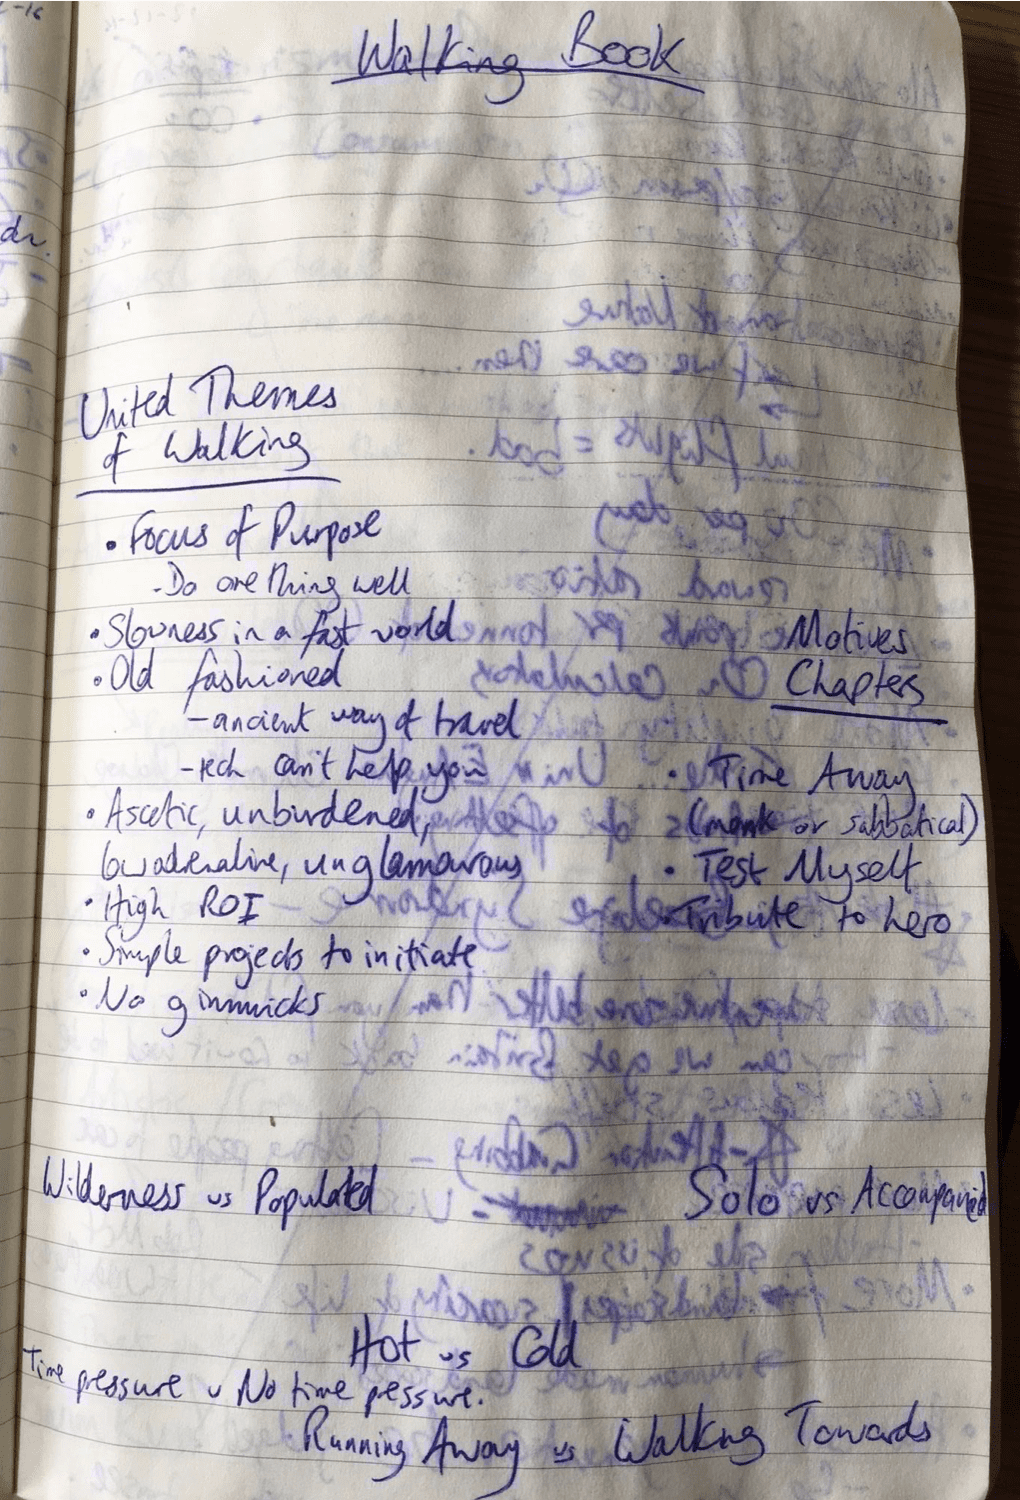 Walking Book
United Themes
of Walking
• Focus of Purpose
- Do one thing well
• Slowness in a fast world
• Old fashioned
- ancient way of travel
- tech can't help you
• Ascetic, unburdened,
low adrenaline, unglamourous
• High ROI
• Simple projects to initiate
• No gimmicks
Motives
Chapters
• Time Away
(monk or sabbatical)
• Test Myself
• Tribute to hero
Wilderness vs Populated
Solo vs Accompanied
Hot vs Cold
Time pressure v No time pressure.
Running Away vs Walking Towards